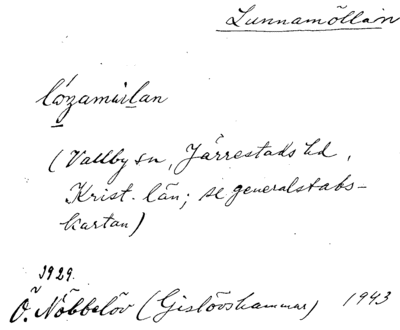 Lunnamöllan
(Vallby sn, Järrestads hd,
Krist. län; se generalstabs-
kartan)
1929.
Ö. Nöbbelöv (Gislövshammar) 1943